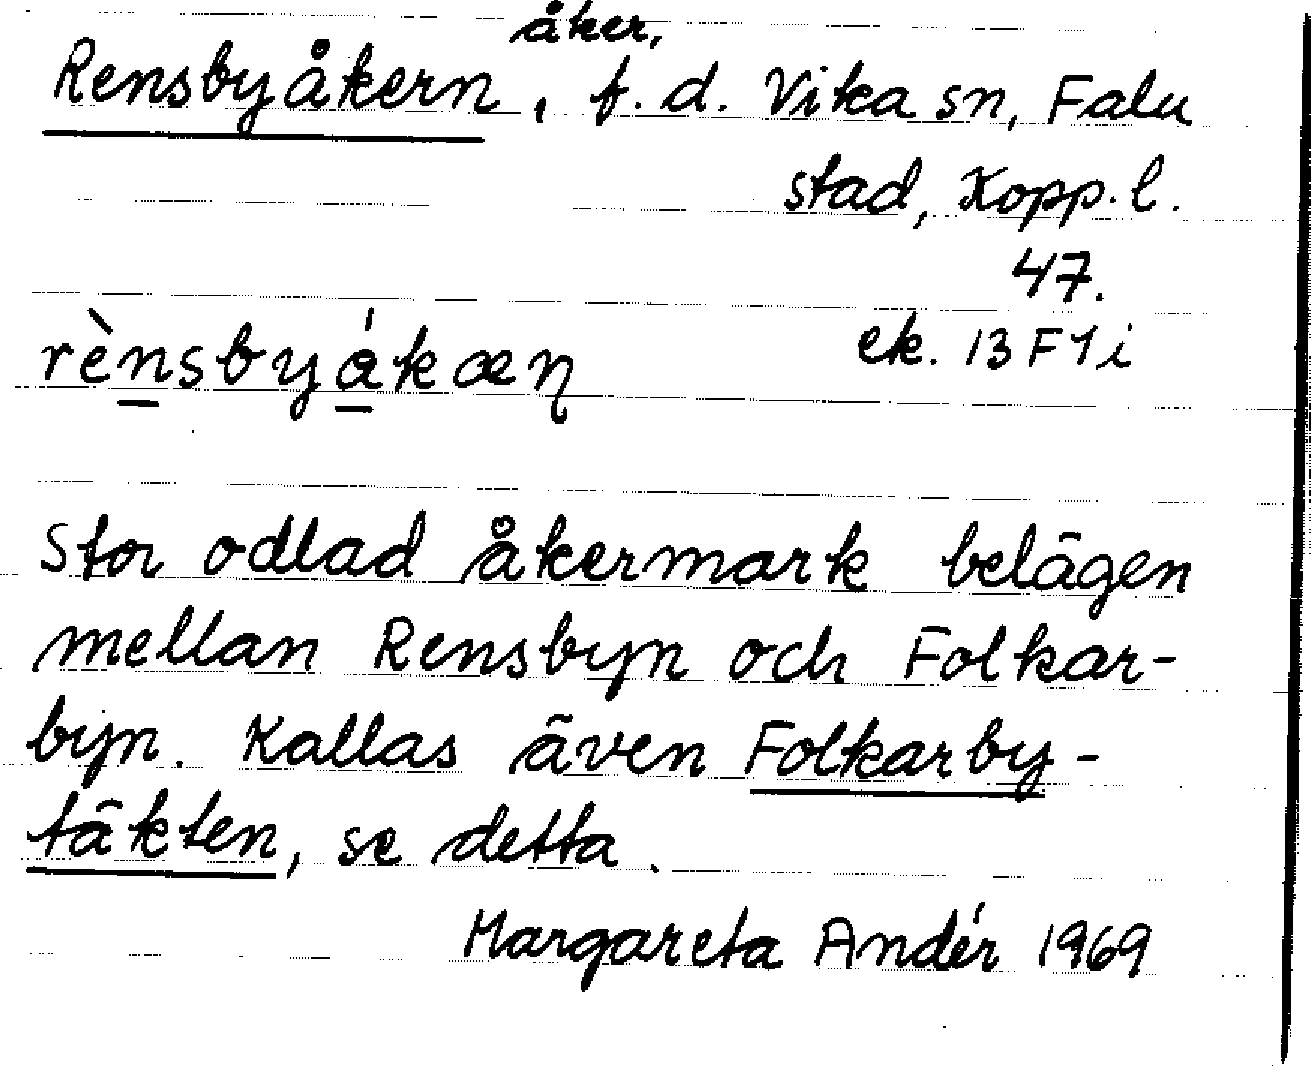 åker,
Rensbyåkern, f.d. Vika sn, Falu
stad, Kopp.l.
47.
rènsbyákæɳ ek. 13 F 1 i
Stor odlad åkermark belägen
mellan Rensbyn och Folkar-
byn. Kallas även Folkarby-
täkten, se detta.
Margareta Andér 1969